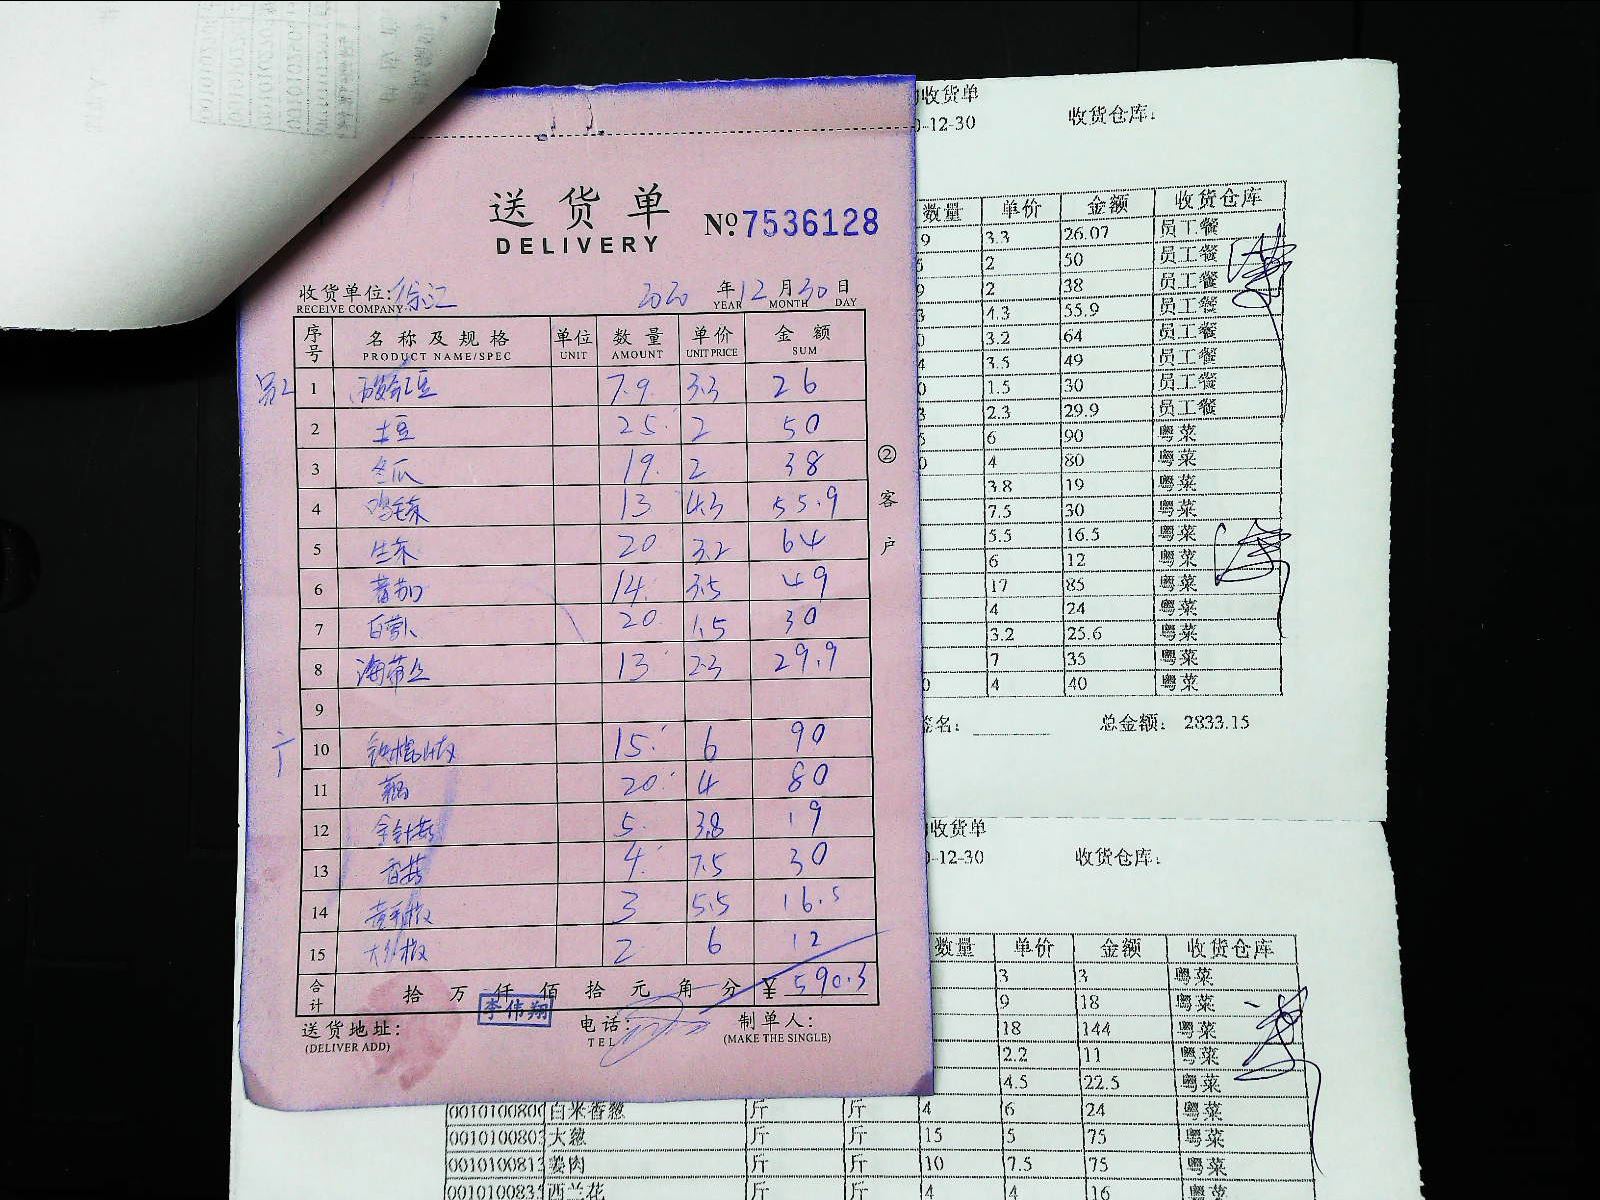 送货单
DELIVERY
№ 7536128
收货单位: 徐汇 2020 年 12 月 30 日
RECEIVE COMPANY YEAR MONTH DAY
序号 名称及规格 单位 数量 单价 金额
PRODUCT NAME/SPEC UNIT AMOUNT UNIT PRICE SUM
员工 1 豆 7.9 3.3 26
2 土豆 25 2 50
3 冬瓜 19 2 38
4 鸡毛菜 13 4.3 55.9
5 生菜 20 3.2 64
6 蕃茄 14 3.5 49
7 白萝卜 20 1.5 30
8 海带丝 13 2.3 29.9
9
10 铁棍山药 15 6 90
11 藕 20 4 80
12 金针菇 5 3.8 19
13 香菇 4 7.5 30
14 青平椒 3 5.5 16.5
15 大红椒 2 6 12
合计 拾 万 仟 佰 拾 元 角 分 ¥ 590.3
李伟翔
送货地址: 电话: 制单人:
(DELIVER ADD) TEL (MAKE THE SINGLE)
② 客户
收货单
-12-30 收货仓库:
数量 单价 金额 收货仓库
9 3.3 26.07 员工餐
2 50 员工餐
9 2 38 员工餐
3 4.3 55.9 员工餐
0 3.2 64 员工餐
4 3.5 49 员工餐
0 1.5 30 员工餐
3 2.3 29.9 员工餐
6 90 粤菜
0 4 80 粤菜
3.8 19 粤菜
7.5 30 粤菜
5.5 16.5 粤菜
6 12 粤菜
17 85 粤菜
4 24 粤菜
3.2 25.6 粤菜
7 35 粤菜
0 4 40 粤菜
签名: 总金额: 2833.15
收货单
-12-30 收货仓库:
数量 单价 金额 收货仓库
3 3 粤菜
9 18 粤菜
18 144 粤菜
2.2 11 粤菜
4.5 22.5 粤菜
001010080 白米香葱 斤 斤 4 6 24 粤菜
001010080 大葱 斤 斤 15 5 75 粤菜
001010081 姜肉 斤 斤 10 7.5 75 粤菜
001010083 西兰花 斤 斤 4 4 16 粤菜